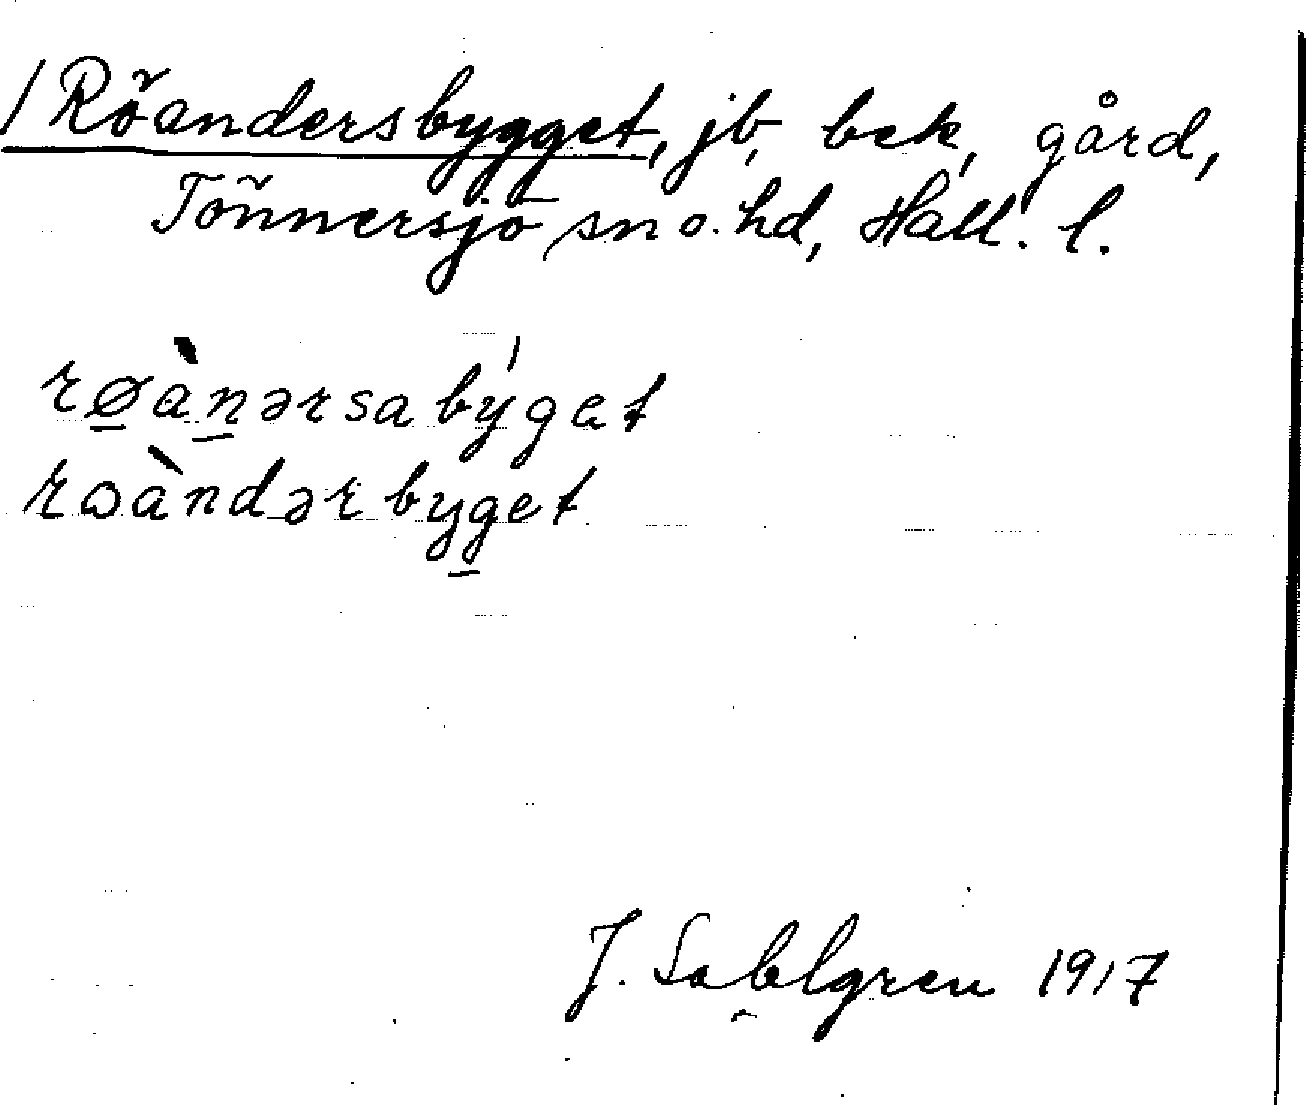 /Röandersbygget, jb, bek, gård,
Tönnersjö sn o. hd, Hall. l.
rø̲àn̲ərsabýget
rɷàndərbyg̲et
J. Sahlgren 1917